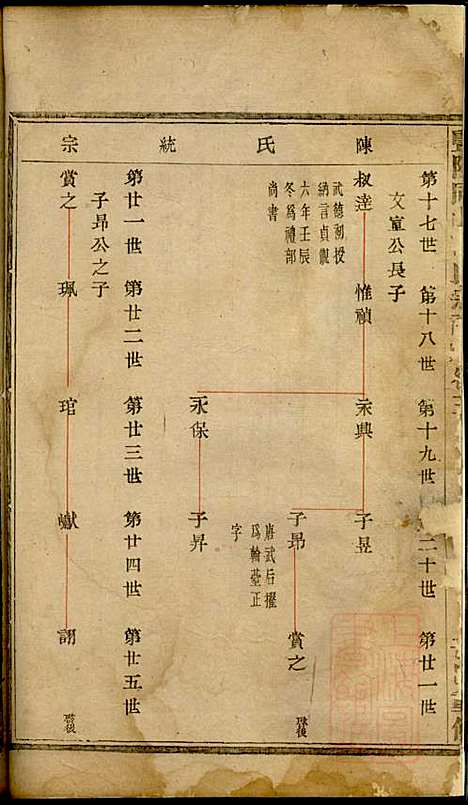 陳氏統宗
第十七世 第十八世 第十九世 二十世 第廿一世
文室公長子
叔達 惟禎 永興 子昱
武德初授
納言貞觀
六年壬辰
冬為禮部
尚書
子昂 賞之 啓後
唐武后擢
為翰臺正
字
永保 子昇
第廿一世 第廿二世 第廿三世 第廿四世 第廿五世
子昂公之子
賞之 珮 琯 巘 詡 啓後